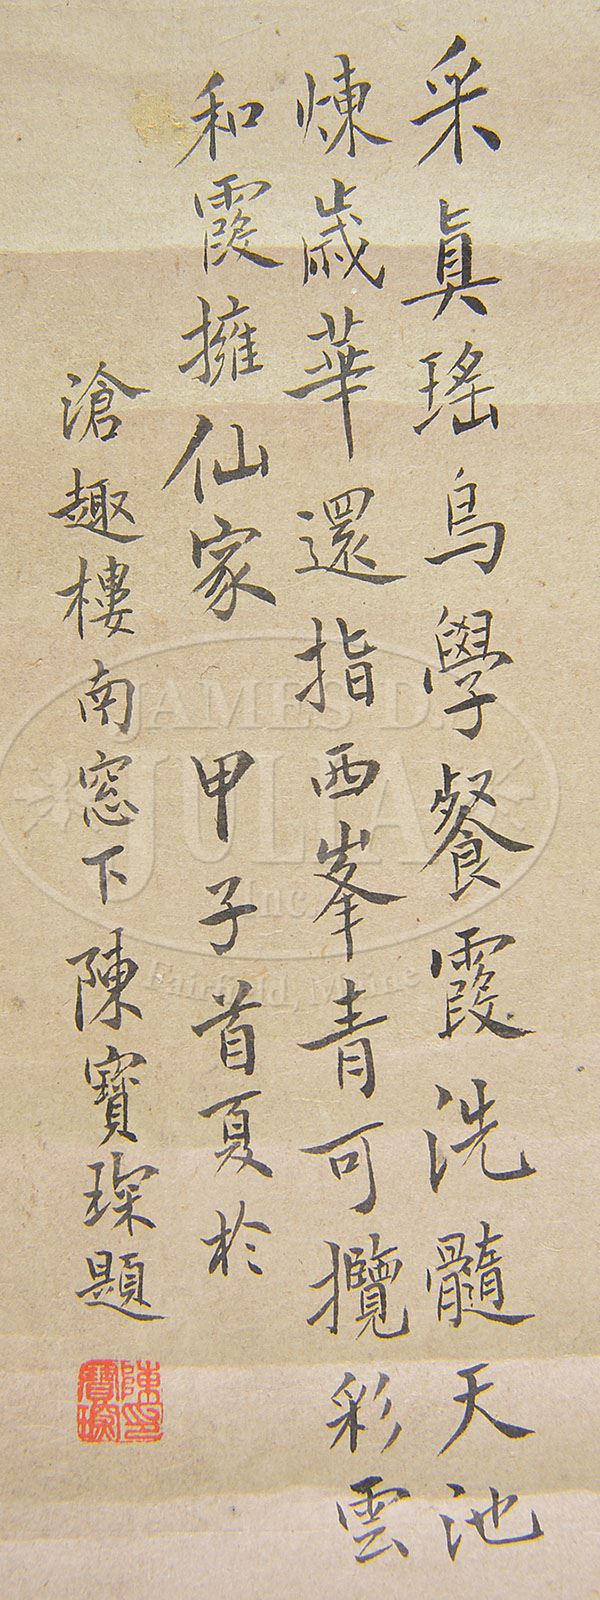 采眞瑤鳥學餐霞洗髓天池
煉歲華還指西峯青可攬彩雲
和霞擁仙家 甲子首夏於
滄趣樓南窓下陳寶琛題
陳寶琛印
JAMES D.
JULIA
Inc.
Fairfield, Maine